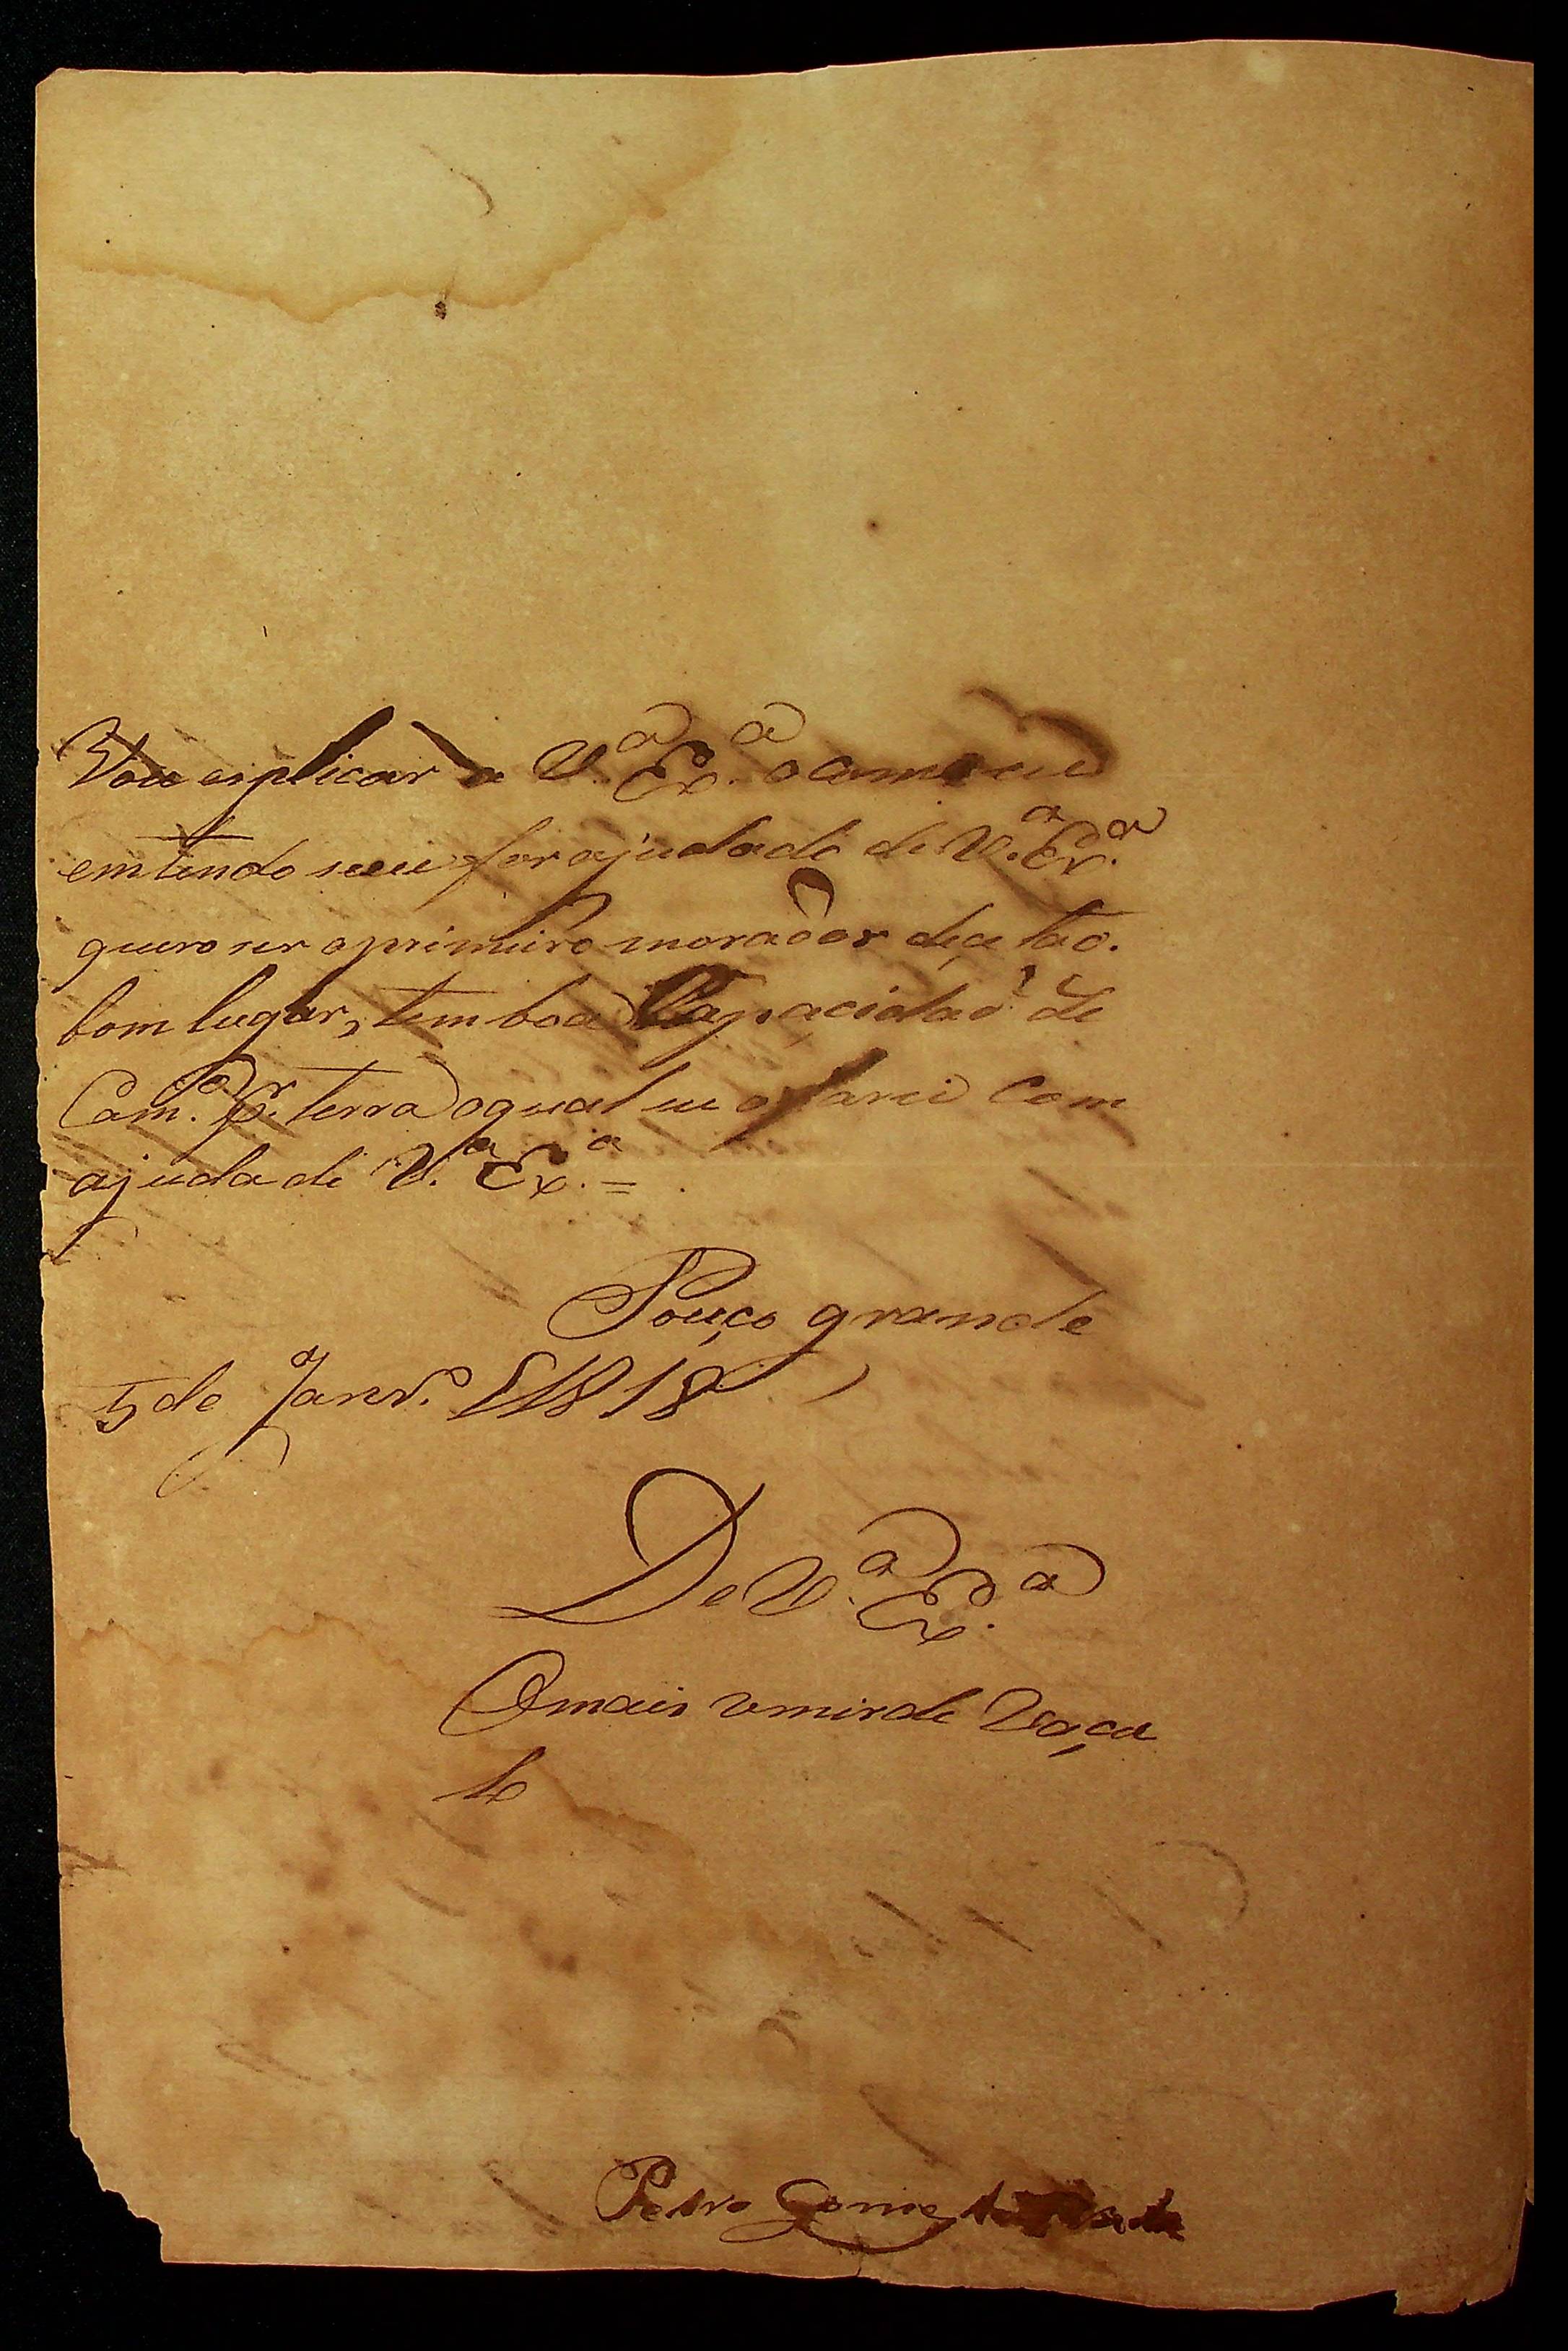 Vou esplicar a V.ª Ex.ª o como eu
emtendo seeu for ajudado de V.ª Ex.ª
quero ser oprimeiro morador deçe tão.
bom lugar, tem boa Capacidad.e de
Cam.º Pr. terra oqual eu ofarei Com
ajuda de V.ª Ex.ª =
Pouço grande
5 de Janr.º 1818
De V.ª Ex.ª
Omais vmirde Vaça
lo
Pedro Gomes